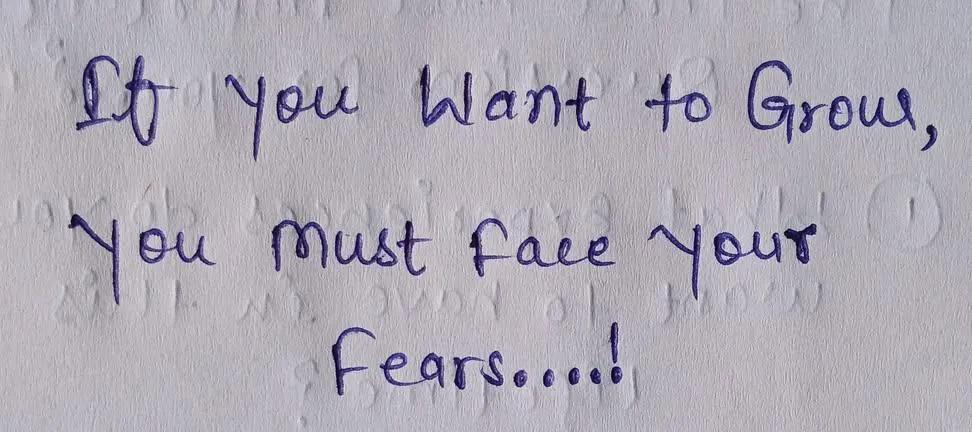 If you Want to Grow,
you must face your
fears.....!